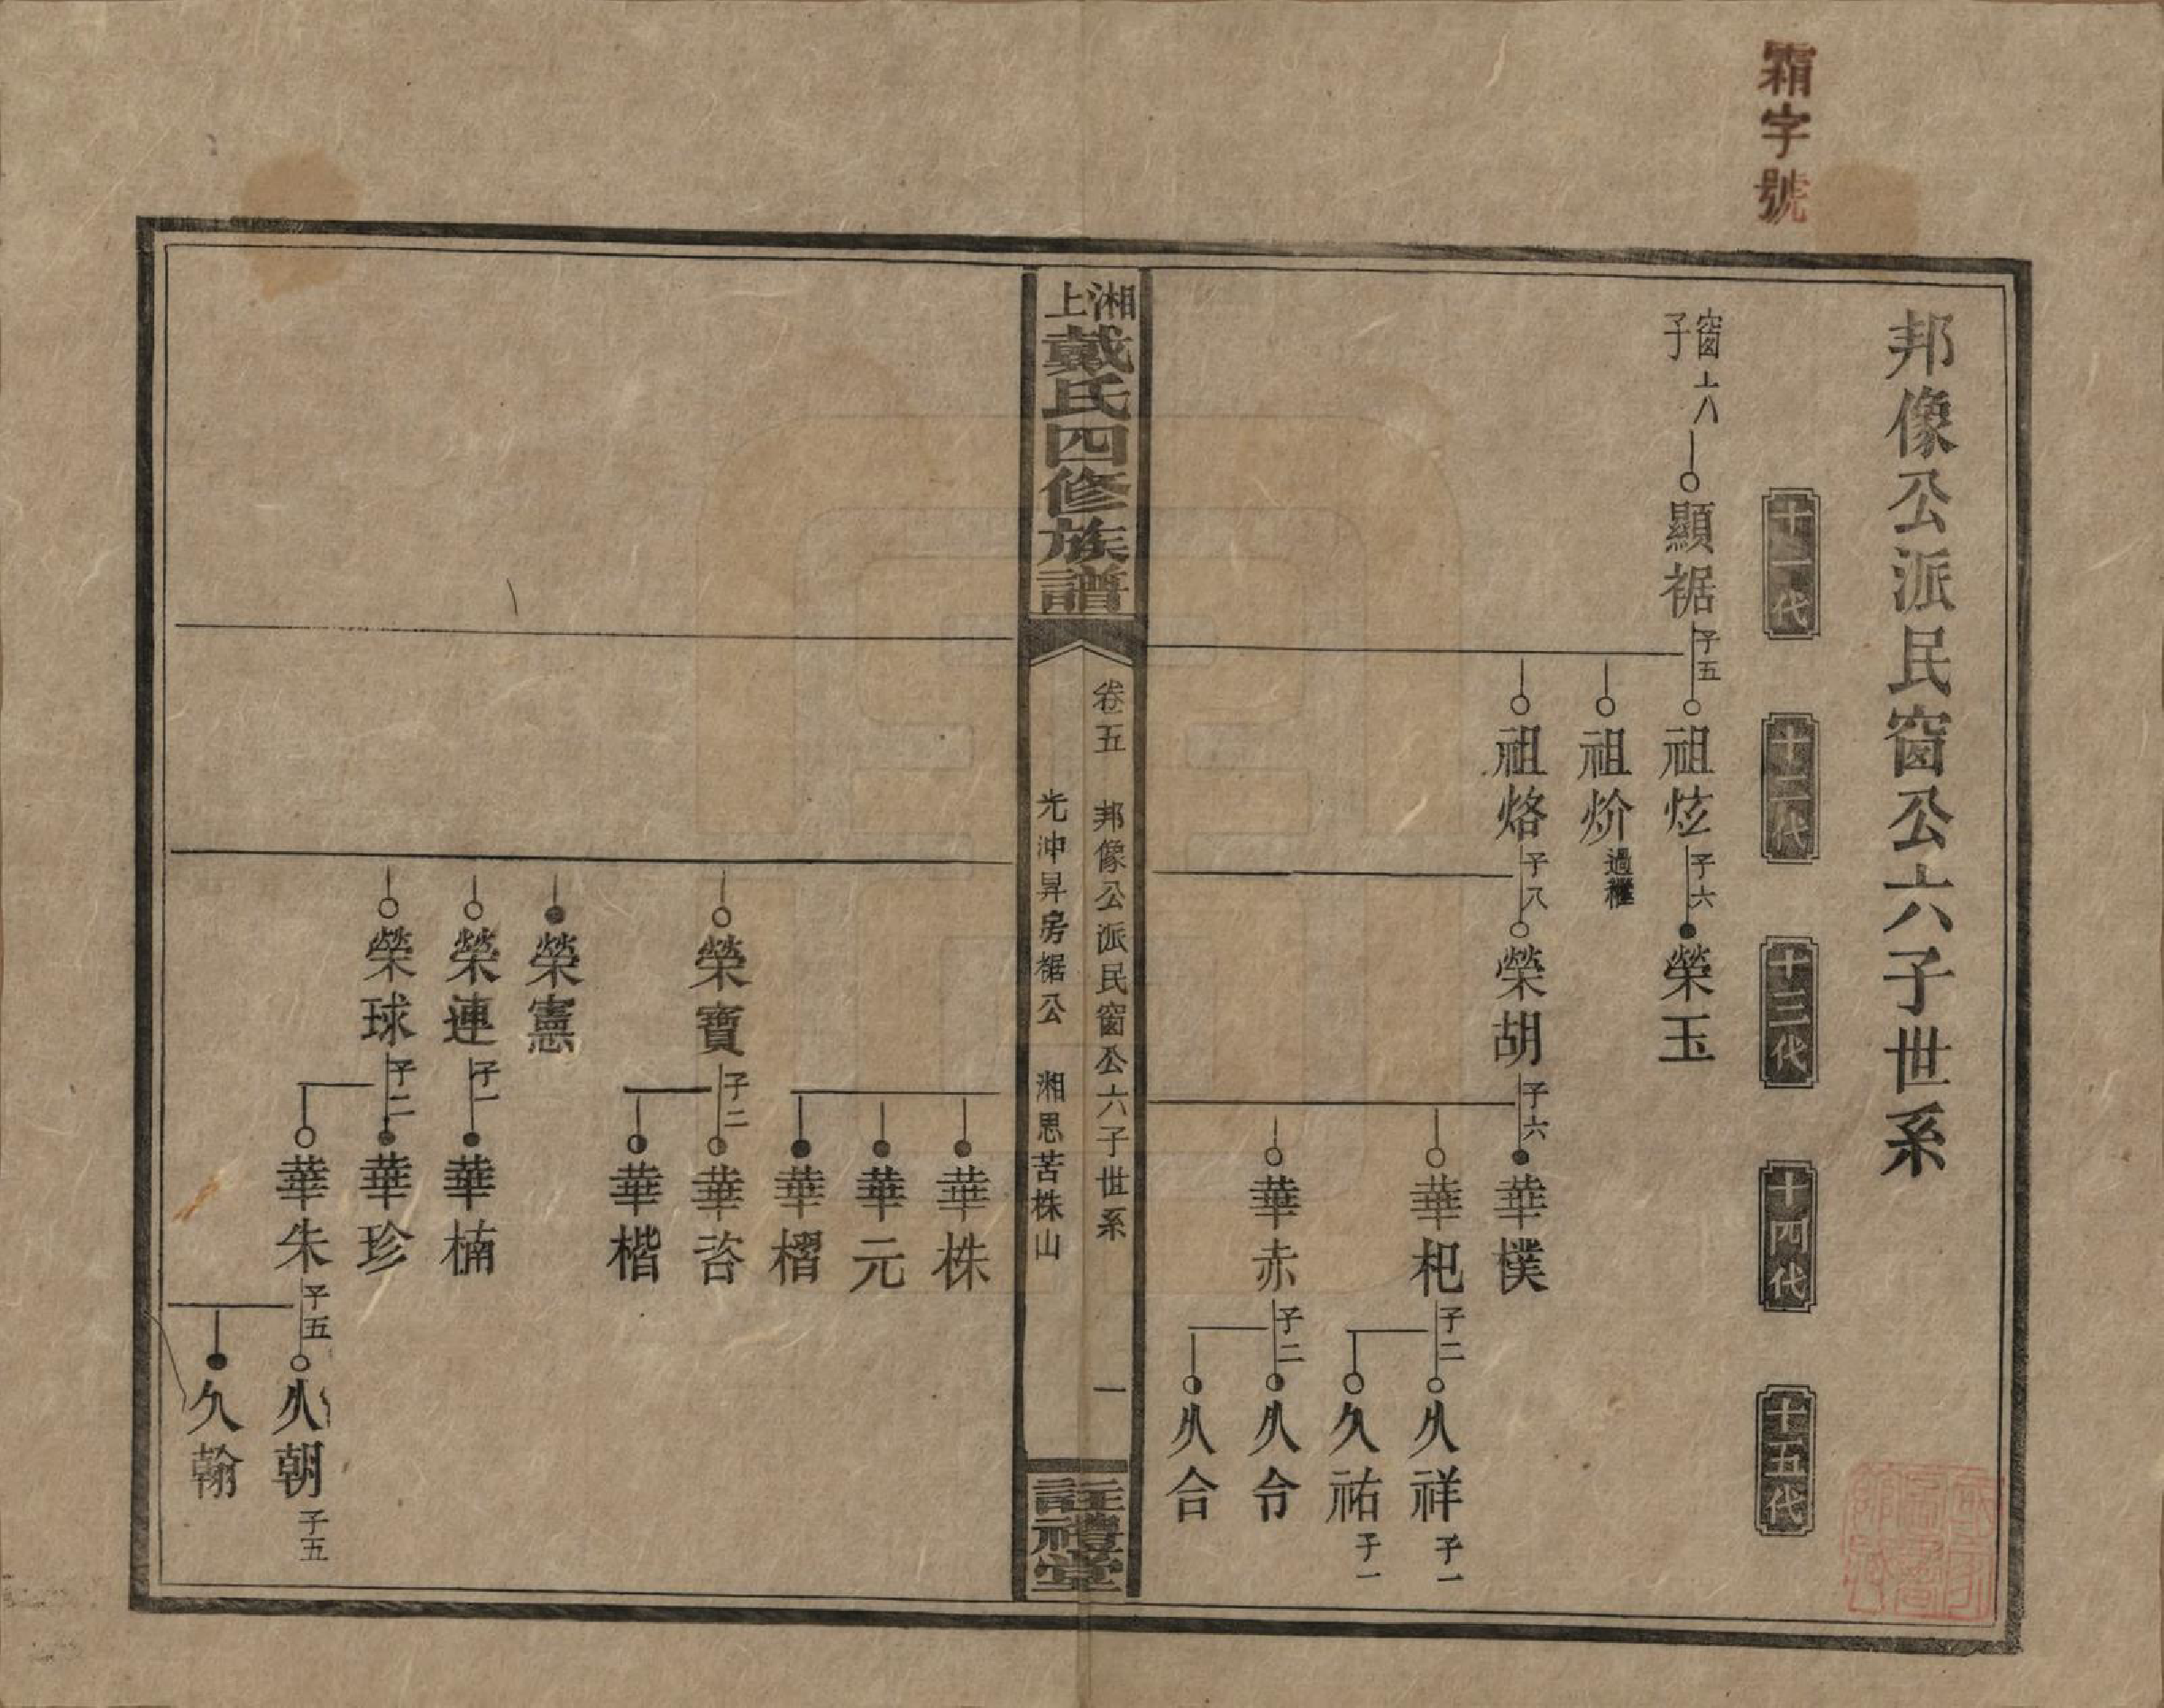 霜字號
邦像公派民窗公六子世系
十一代
十二代
十三代
十四代
十五代
窗子
上八
顯裾
子五
祖炫
子六
榮玉
祖炌
過繼
祖烙
子八
榮胡
子六
華樸
華杞
子二
久祥
子一
久祐
子一
華赤
子二
久令
久合
湘上戴氏四修族譜
卷五
邦像公派民窗公六子世系
一
光沖昇房裾公
湘思苦株山
註禮堂
華株
華元
華槢
榮寶
子二
華咨
華楷
榮憲
榮連
子一
華楠
榮球
子二
華珍
華朱
子五
久朝
子五
久翰